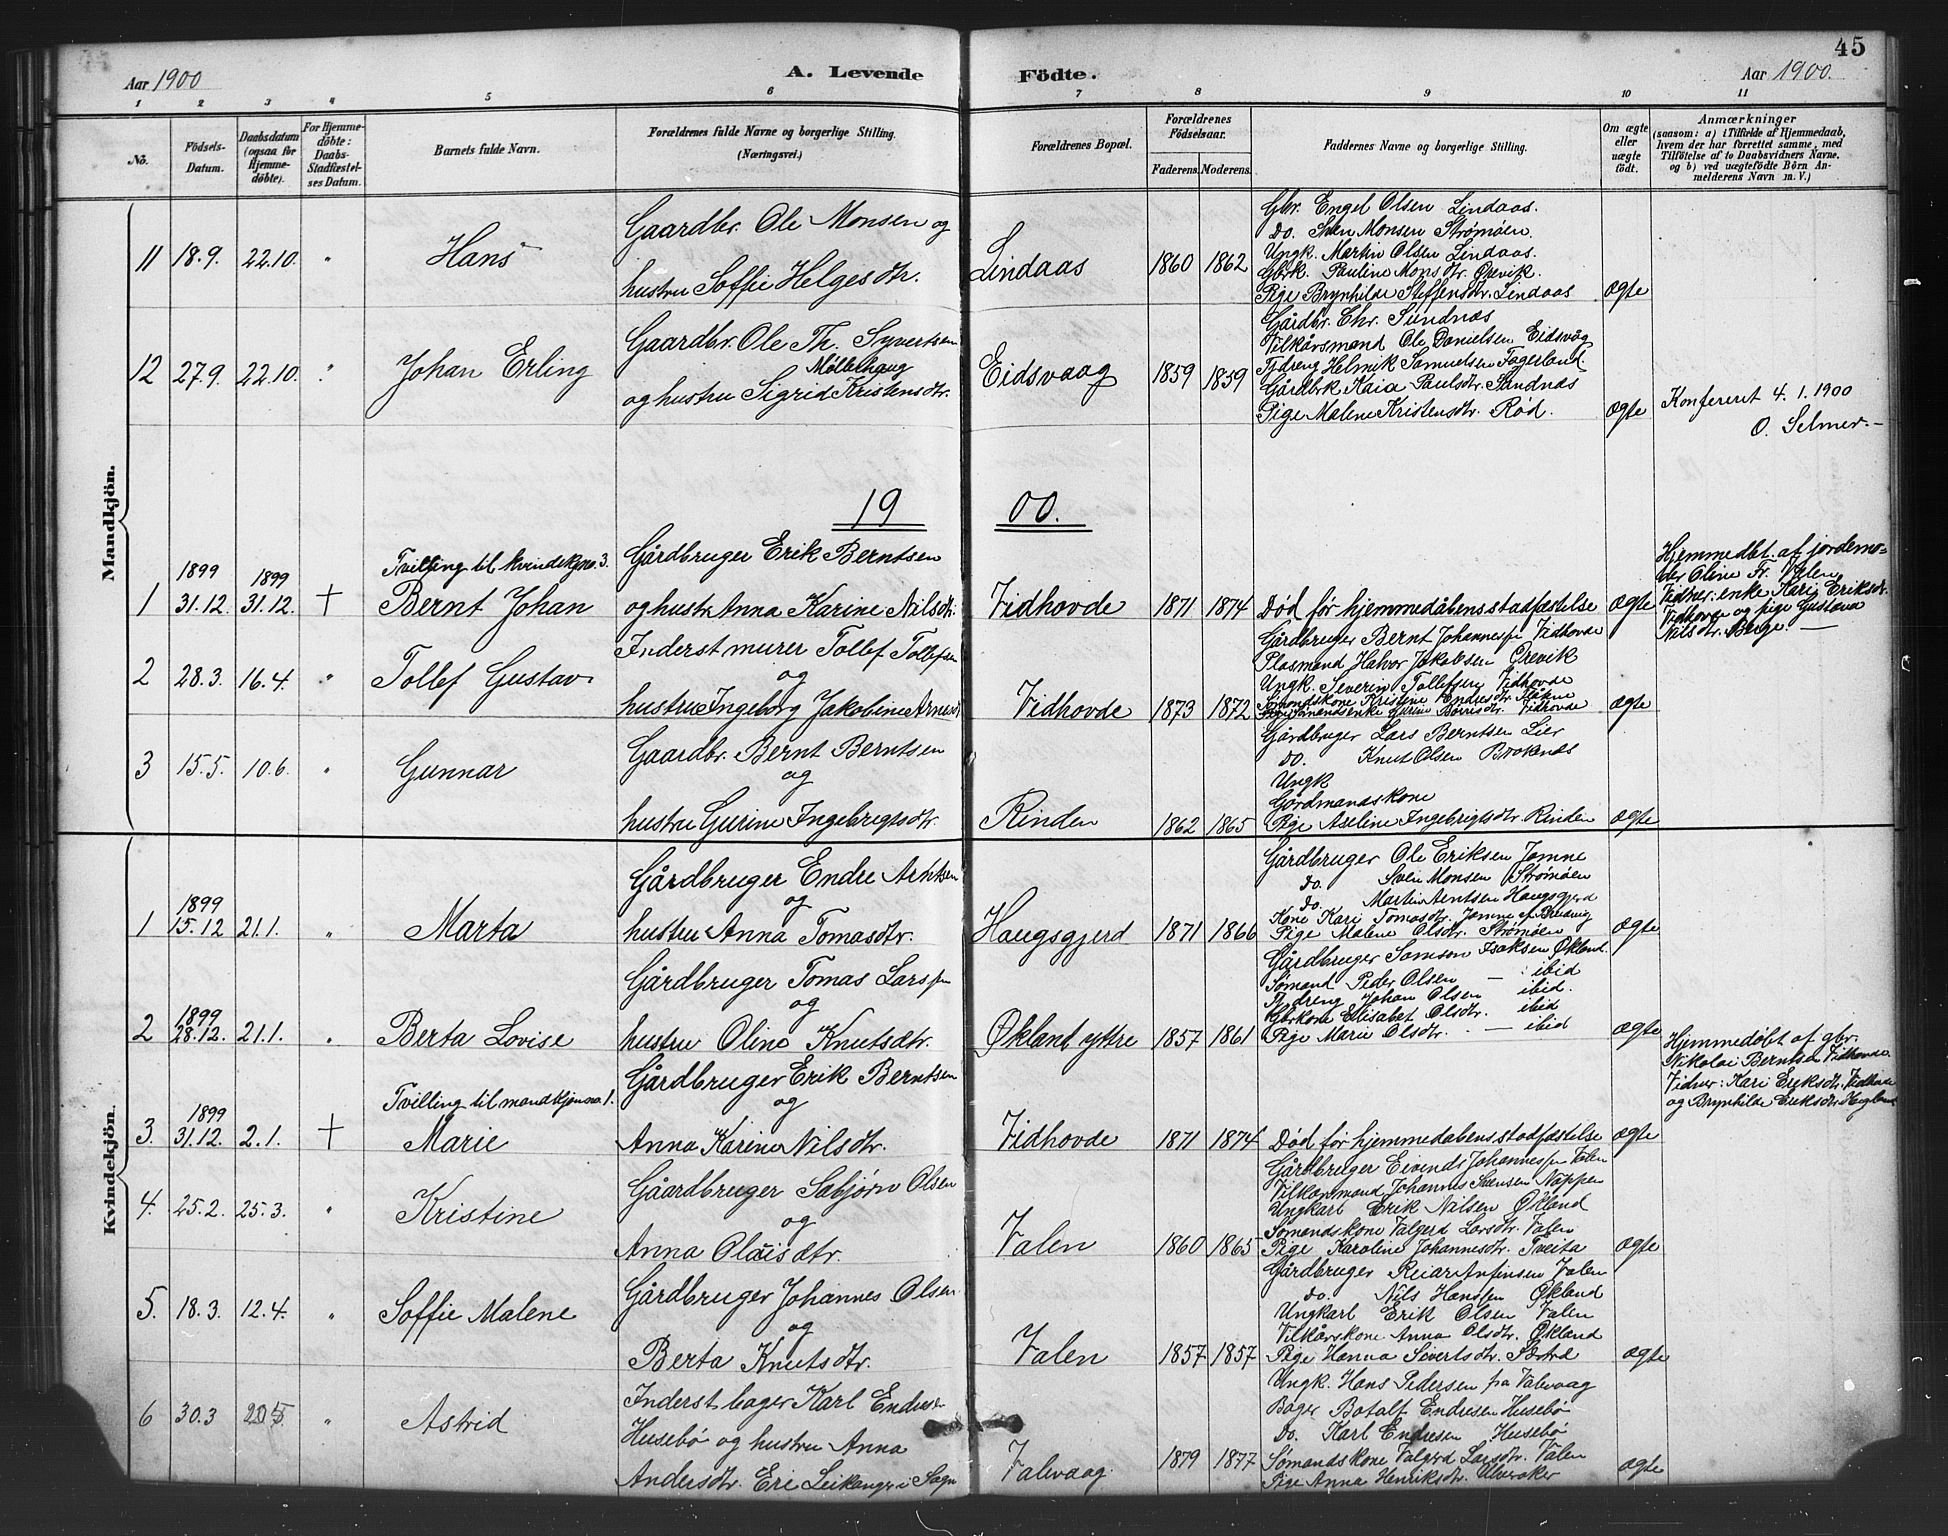 45
Aar 1900
A. Levende Födte.
Aar 1900.
1 2 3 4 5 6 7 8 9 10 11
No.
Födsels-Datum.
Daabsdatum (ogsaa for Hjemme-döbte).
For Hjemme-döbte: Daabs-Stadfæstel-ses Datum.
Barnets fulde Navn.
Forældrenes fulde Navne og borgerlige Stilling. (Næringsvei.)
Forældrenes Bopæl.
Forældrenes Födselsaar.
Faderens. Moderens.
Faddernes Navne og borgerlige Stilling.
Om ægte eller uægte födt.
Anmærkninger
(saasom: a) i Tilfælde af Hjemmedaab, hvem der har forrettet samme, med Tilföielse af to Daabsvidners Navne, og b) ved uægtefödte Börn An-melderens Navn m. V.)
Mandkjön.
11 18.9. 22.10. " Hans
Gaardbr. Ole Monsen og
hustru Soffie Helgesdtr.
Lindaas 1860 1862
Gbr. Engel Olsen Lindaas.
Do. Sven Monsen Strømøen.
Ungk. Martin Olsen Lindaas.
Gbrk. Pauline Monsdtr. Orevik.
Pige Brynhilde Steffensdtr. Lindaas ægte
12 27.9. 22.10. " Johan Erling
Gaardbr. Ole Th. Syvertsen
Mølbehaug
og hustru Sigrid Kristensdtr.
Eidsvaag 1859 1859
Gårdbr. Chr. Sundnæs
Vilkårsmand Ole Danielsen Eidsvåg
Tjdreng Helmik Samuelsen Fagerland
Gårdbrk Kaia Paulsdtr. Sandnæs
Pige Malene Kristensdtr. Rød. ægte
Konfereret 4.1.1900
O. Selmer.
19 00.
1 1899 31.12. 1899 31.12. †
Tvilling til kvindekjno. 3.
Bernt Johan
Gårdbruger Erik Berntsen
og hustr. Anna Karine Nilsdtr.
Vidhovde 1871 1874 Død før hjemmedåbens stadfæstelse ægte
Hjemmedbt. af jordemo-
der Oline Fr. Valen
Vidner: enke Kari Eriksdtr.
Vidhovde og pige Gustava
Nilsdtr. Berge.
2 28.3. 16.4. " Tollef Gustav
Inderst murer Tollef Tollefsen
og
hustru Ingeborg Jakobine Arnesdtr
Vidhovde 1873 1872
Gårdbruger Bernt Johannesen Vidhovde
Plasmand Halvor Jakobsen Orevik
Ungk. Severin Tollefsen Vidhovde
Sømandskone Kristine Endresdtr.
enke Gurine Vidhovde ægte
3 15.5. 10.6. " Gunnar
Gaardbr. Bernt Berntsen
og
hustru Gurine Ingebrigtsdtr.
Rinden 1862 1865
Gårdbruger Lars Berntsen Lier
do. Knut Olsen Bvoknæs
Ungk
Gårdmandskone
Pige Axeline Ingebrigtsdtr. Rinden ægte
Kvindekjön.
1 1899 15.12 21.1. " Marta
Gårdbruger Endre Arntsen
og
hustru Anna Tomasdtr.
Haugsgjerd 1871 1866
Gårdbruger Ole Eriksen Jomne
do. Sven Monsen Strømøen
do. Martin Arntsen Haugsgjerd
Kone Kari Tomasdtr. Jomne
Pige Malene Olsdtr. Strømøen ægte
2 1899 28.12. 21.1. " Berta Lovise
Gårdbruger Tomas Larssen
og
hustru Oline Knutsdtr.
Økland yttre 1857 1861
Gårdbruger Samson Isaksen Økland.
Sømand Peder Olsen — ibid
Tjdreng Johan Olsen ibid.
Gbrkone Elisabet Olsdtr. ibid
Pige Marie Olsdtr. — ibid ægte
3. 1899 31.12. 2.1. †
Tvilling til mandkjønno 1.
Marie
Gårdbruger Erik Berntsen
og
Anna Karine Nilsdtr.
Vidhovde 1871 1874 Død før hjemmedåbens stadfæstelse ægte
Hjemmedøbt af gbr.
Nikolai Berntsen Vidhovde
Vidner: Kari Eriksdtr. Vidhovde
og Brynhilde Eriksdtr.
4. 25.2. 25.3. " Kristine
Gåardbruger Sæbjørn Olsen
og
Anna Olaisdtr.
Valen 1860 1865
Gårdbruger Eivend Johannesen Valen
Vilkårsmand Johannes Svensen Nappen
Ungkarl Erik Nilsen Økland
Sømandskone Valgerd Larsdtr. Valen
Pige Karoline Johannesdtr. Tveita ægte
5. 18.3. 12.4. " Soffie Malene
Gårdbruger Johannes Olsen
og
Berta Knutsdtr.
Valen 1857 1857
Gårdbruger Reiar Anfinsen Valen
do. Nils Hanssen Økland
Ungkarl Erik Olsen Valen
Vilkårskone Anna Olsdtr. Økland
Pige Hanna Sivertsdtr. ægte
6 30.3 20.5 " Astrid
Inderst bager Karl Endresen
Husebø og hustru Anna
Andersdtr. Eri Leikanger i Sogn
Valevaag. 1879 1877
Ungk. Hans Pedersen fra Valevaag
Bager Botolf Endresen Husebø
Do. Karl Endresen Husebø
Sømandskone Valgerd Larsdtr. Valen
Pige Anna Henriksdtr. Ulveraker ægte